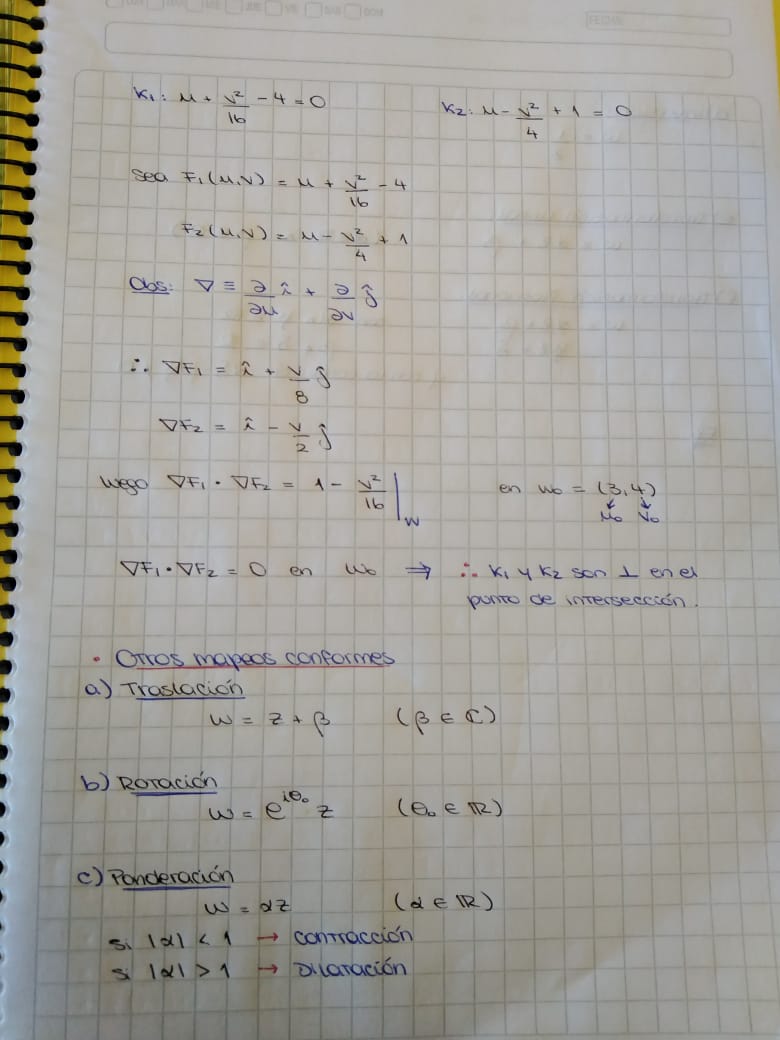 LUN MAR MIE JUE VIE SAB DOM
FECHA:
K₁: u + v²/16 - 4 = 0    K₂: u - v²/4 + 1 = 0
Sea F₁(u,v) = u + v²/16 - 4
F₂(u,v) = u - v²/4 + 1
Obs: ∇ ≡ ∂/∂u î + ∂/∂v ĵ
∴ ∇F₁ = î + v/8 ĵ
∇F₂ = î - v/2 ĵ
Luego ∇F₁ · ∇F₂ = 1 - v²/16 |w    en w₀ = (3,4)
u₀ v₀
∇F₁ · ∇F₂ = 0 en w₀ ⇒ ∴ K₁ y K₂ son ⊥ en el
punto de intersección.
• Otros mapeos conformes
a) Traslación
w = z + β    (β ∈ ℂ)
b) Rotación
w = e^{iθ₀} z    (θ₀ ∈ ℝ)
c) Ponderación
w = αz    (α ∈ ℝ)
si |α| < 1 → contracción
si |α| > 1 → Dilatación